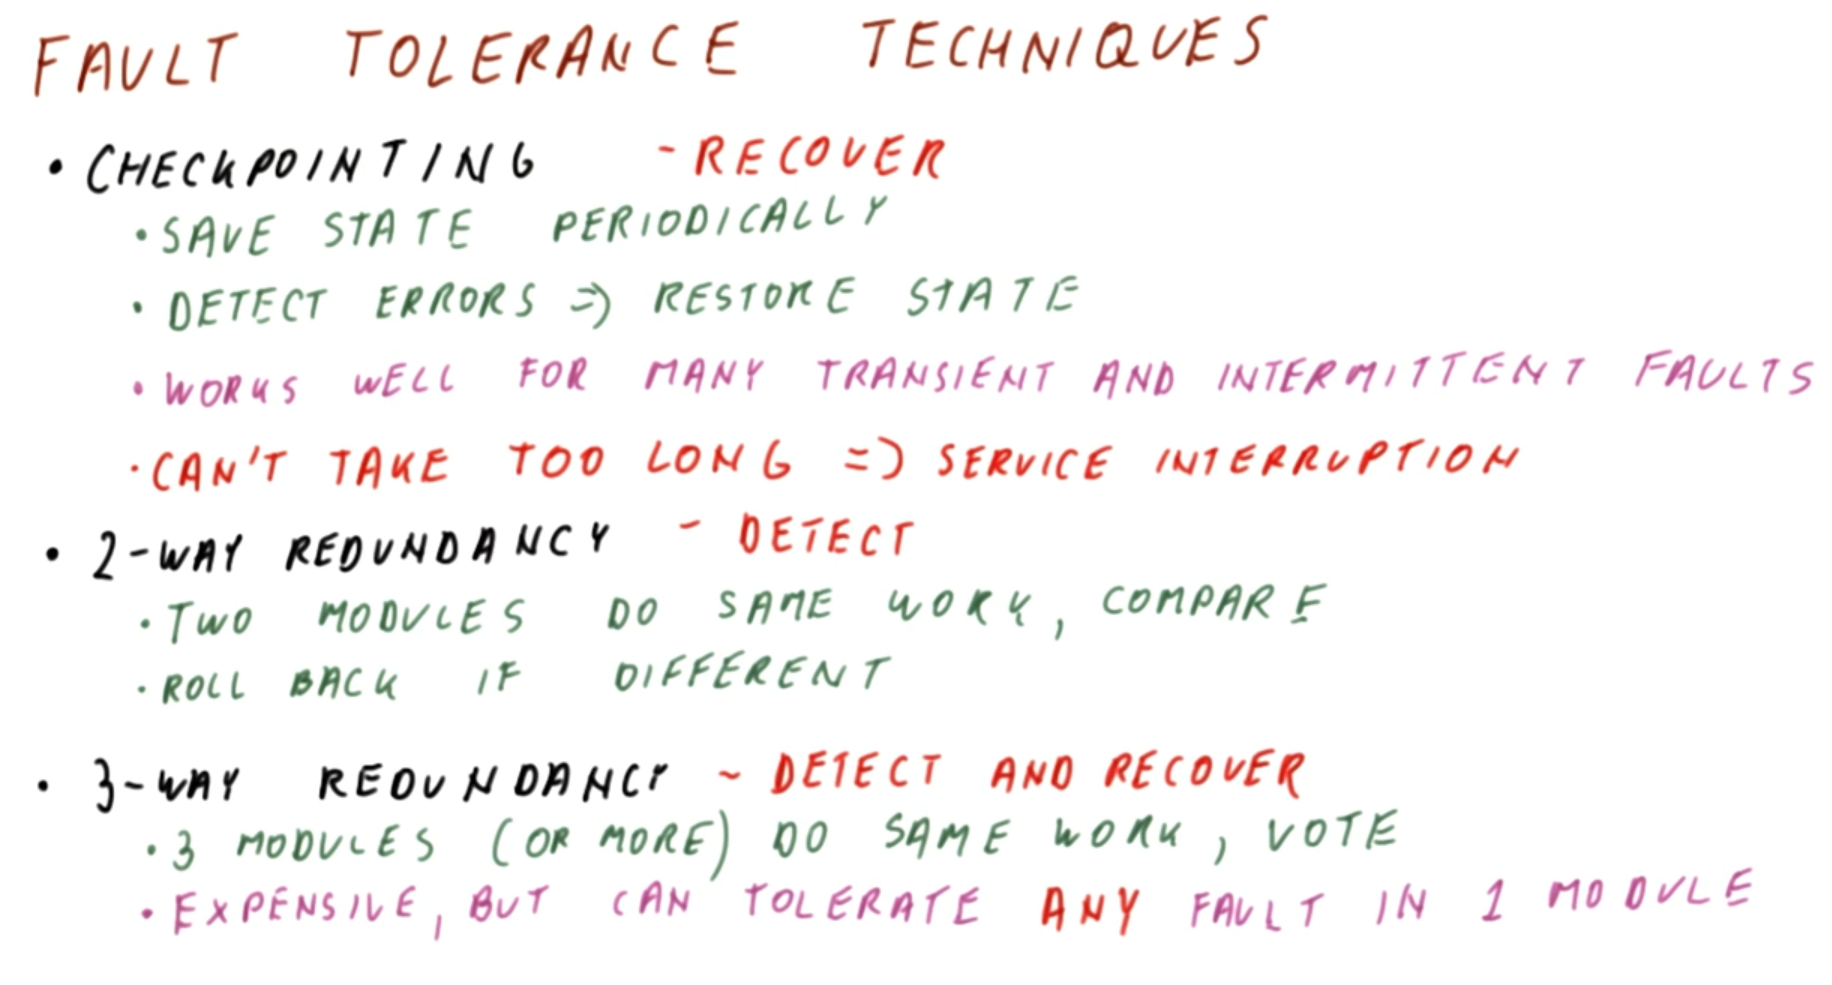 FAULT TOLERANCE TECHNIQUES
• CHECKPOINTING - RECOVER
• SAVE STATE PERIODICALLY
• DETECT ERRORS => RESTORE STATE
• WORKS WELL FOR MANY TRANSIENT AND INTERMITTENT FAULTS
• CAN'T TAKE TOO LONG => SERVICE INTERRUPTION
• 2-WAY REDUNDANCY - DETECT
• TWO MODULES DO SAME WORK, COMPARE
• ROLL BACK IF DIFFERENT
• 3-WAY REDUNDANCY ~ DETECT AND RECOVER
• 3 MODULES (OR MORE) DO SAME WORK, VOTE
• EXPENSIVE, BUT CAN TOLERATE ANY FAULT IN 1 MODULE